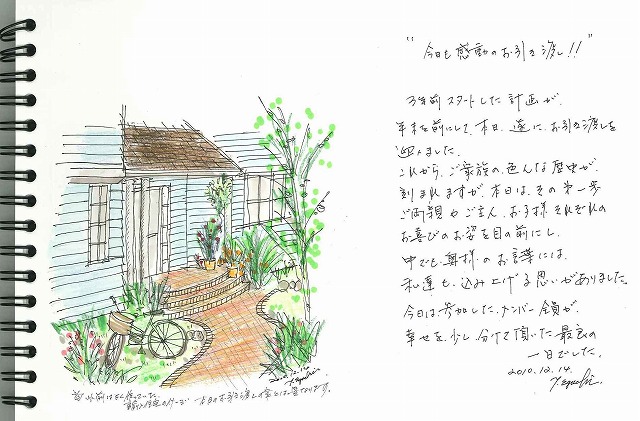 "今日も感動のお引き渡し!!"
3年前スタートした計画が、
年末を前にして、本日、遂に、お引き渡しを
迎えました。
これから、ご家族の、色んな歴史が、
刻まれますが、本日は、その第一歩
ご両親やご主人、お子様それぞれの
お喜びのお姿を目の前にし、
中でも、奥様のお言葉には、
私達も、込み上げる思いがありました。
今日は参加したメンバー全員が、
幸せを、少し、分けて頂いた最良の
一日でした。
2010.12.14.
2010.12.14
本日のお引き渡しの家とは異なります。